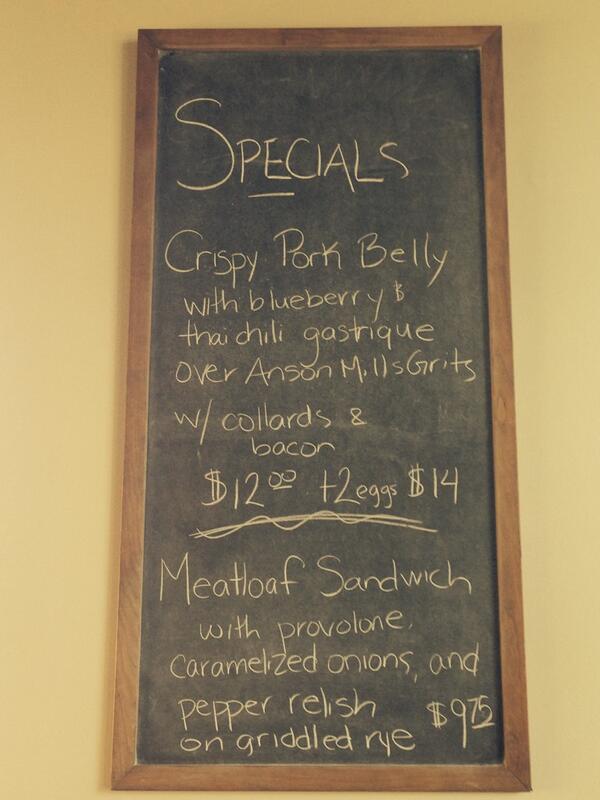 SPECIALS
Crispy Pork Belly
with blueberry &
thai chili gastrique
over Anson Mills Grits
w/ collards &
bacon
$12.00 +2eggs $14
Meatloaf Sandwich
with provolone,
caramelized onions, and
pepper relish $9.75
on griddled rye